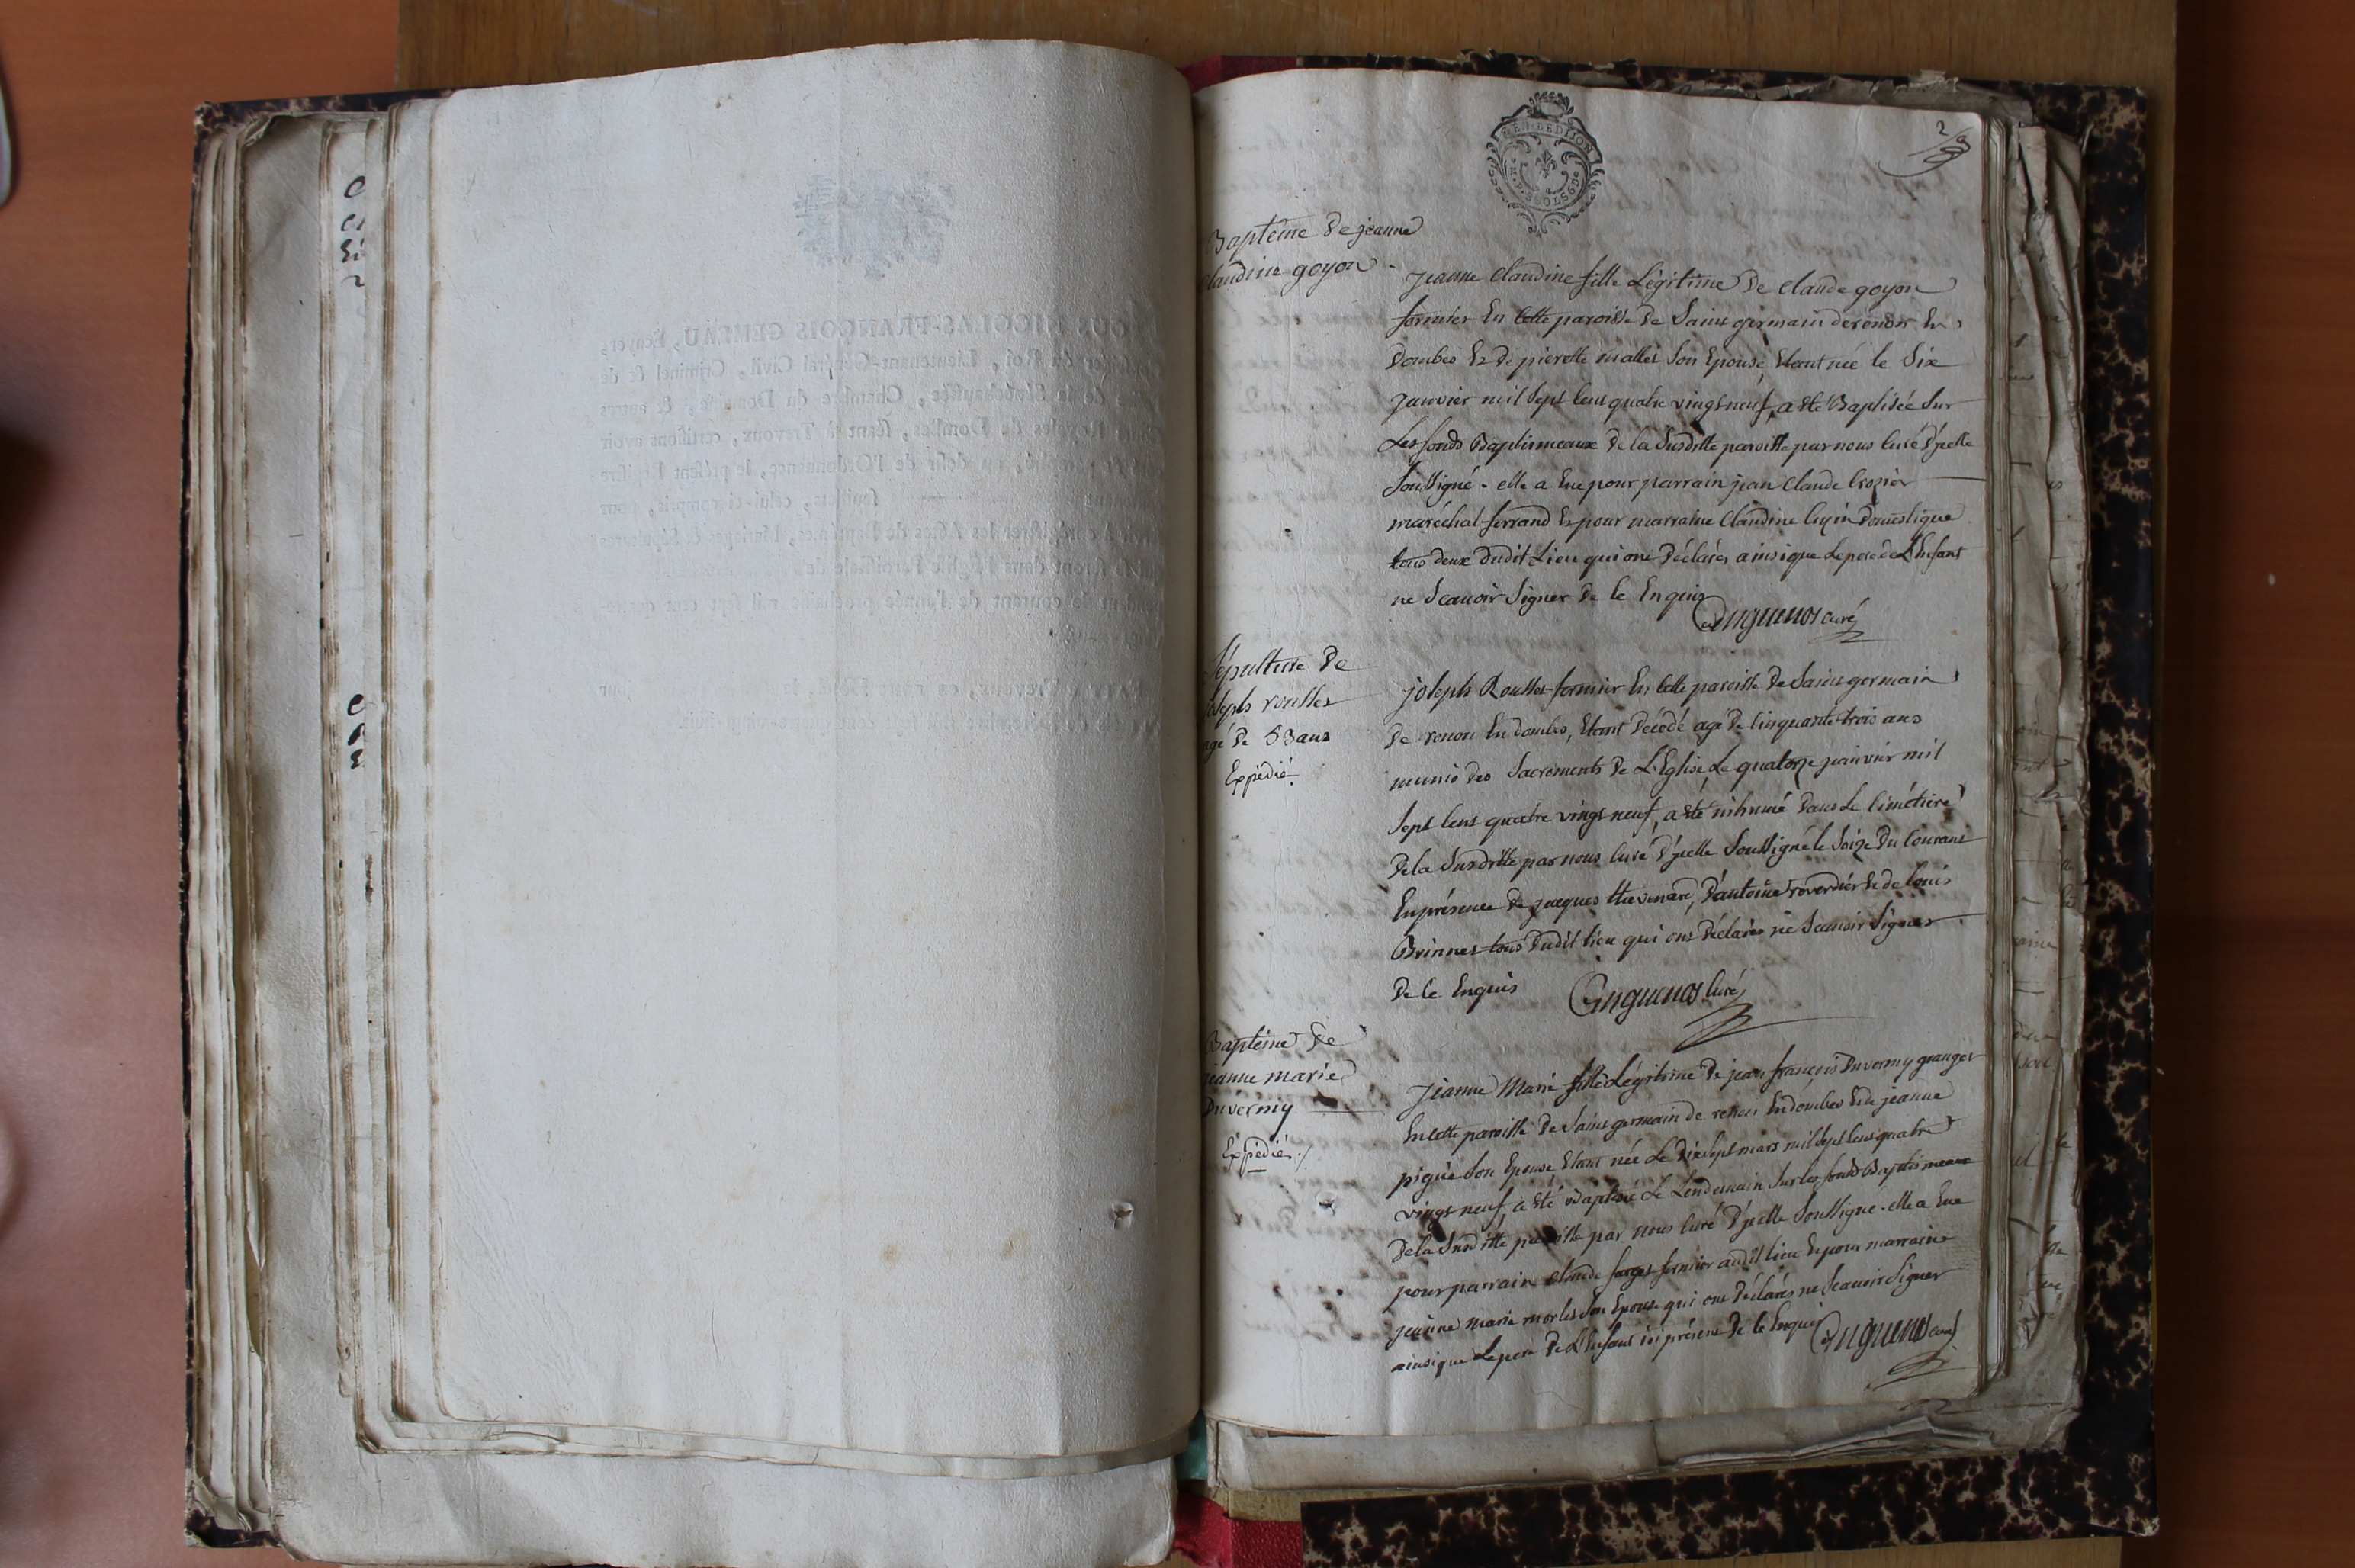 GEN. DE DIJON
M. P. 8 SOLS 6 De
2
Baptême De jeanne
Claudine goyon
jeanne Claudine fille Légitime De Claude goyon
fermier En Cette paroisse De Saint germain de renon En
Dombes Et De pierette mallet Son Epouse, Etant née le Six
janvier mil Sept Cens quatre vingt neuf, a été Baptisée Sur
Les fonds Baptismeaux De la Susditte paroisse par nous Curé D'ycelle
Soussigné. elle a Eue pour parrain jean Claude Crozier
maréchal ferrand Et pour marraine Claudine Domestique
tous deux Dudit Lieu qui ont Déclarés ainsi que Le pere de L'Enfant
ne Scauoir Signer De Ce Enquis
curé
Sépulture De
joseph rousset
agé De 53 ans
Expédié.
joseph Rousset fermier En Cette paroisse De Saint germain
De renon En dombes, Etant Décédé agé De Cinquante trois ans
munis des Sacrements De L'Eglise, Le quatorze janvier mil
Sept Cens quatre vingt neuf, a été inhumé Dans Le Cimétiere
De la Susditte par nous Curé D'ycelle Soussigné le Seize Du Courant
En présence De jacques thevenard, D'antoine reverdier Et de Louis
tous Dudit lieu qui ont Déclarés ne Scauoir Signer
De Ce Enquis
Curé
Baptême De
jeanne marie
Duvernay
Expédié./
jeanne Marie fille Légitime De jean françois Duverny granger
En Cette paroisse De Saint germain de renon En dombes Et de jeanne
Son Epouse, Etant née Le Dix Sept mars mil Sept Cens quatre
vingt neuf, a été Baptisée Le Lendemain Sur les fonds Baptismeaux
De la Susditte paroisse par nous Curé D'ycelle Soussigné. elle a Eue
pour parrain Claude forget fermier audit lieu Et pour marraine
jeanne marie morlet Son Epouse qui ont Déclarés ne Scauoir Signer
ainsi que Le pere De L'Enfant ici présent De Ce Enquis
curé